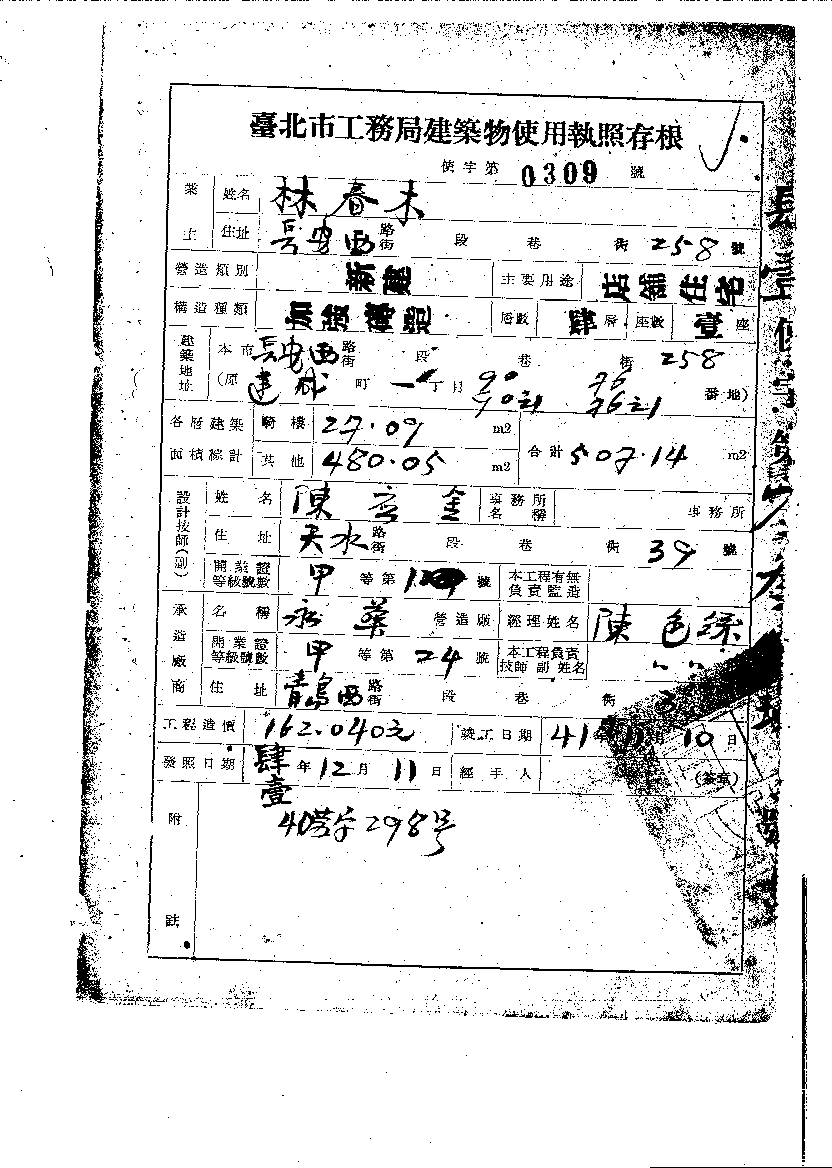 臺北市工務局建築物使用執照存根
使字第 0309 號
業主 姓名 林春木
住址 長安西 路街 段 巷 衖 258 號
營造類別 新建 主要用途 店舖住宅
構造種類 加強磚造 層數 肆 層 座數 壹 座
建築地址 本市 長安西 路街 段 巷 衖 258
(原 建成 町 一 丁目 90 90之1 96 96之1 番地)
各層建築面積綜計 騎樓 27.09 m2 合計 507.14 m2
其他 480.05 m2
設計技師(副) 姓名 陳 金 事務所名稱 事務所
住址 天水 路街 段 巷 衖 39 號
開業證等級號數 甲 等第 號 本工程有無負責監造
承造廠商 名稱 永 營造廠 經理姓名 陳色
開業證等級號數 甲 等第 24 號 本工程負責技師副姓名
住址 青島西 路街 段 巷 衖
工程造價 162.040元 竣工日期 41年11月10日
發照日期 肆壹年12月11日 經手人 (簽章)
附註 40 字298号